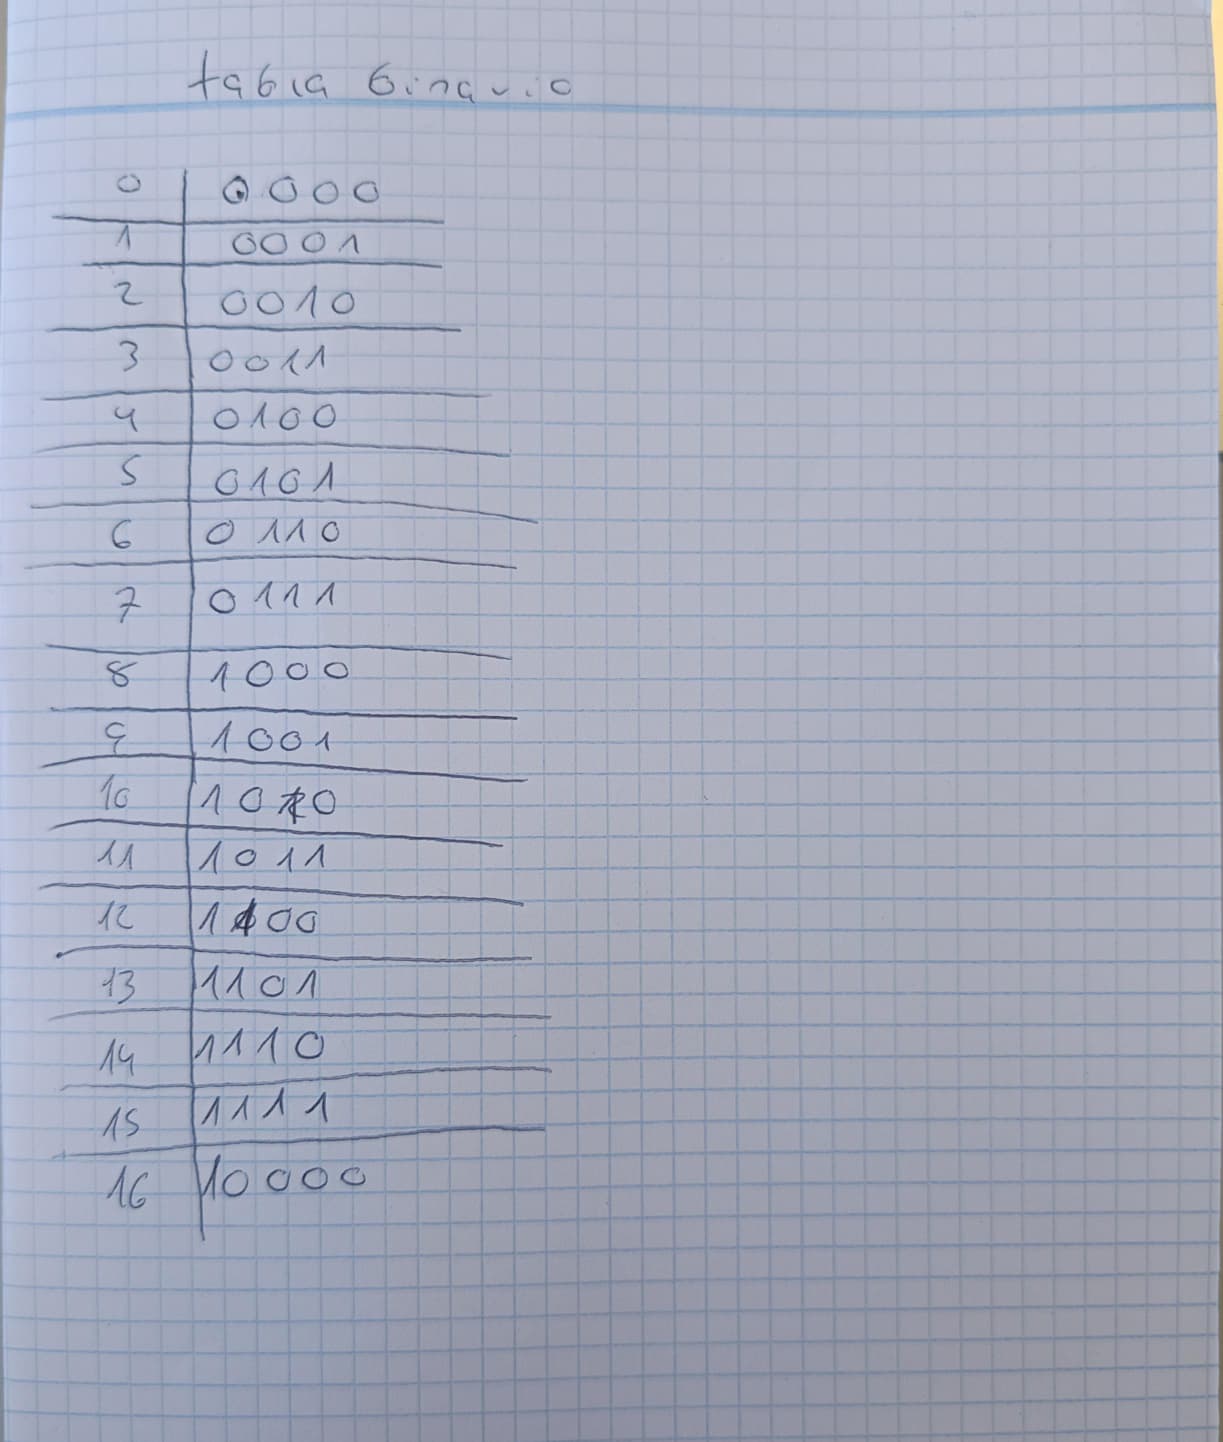 tabla binario
0 0000
1 0001
2 0010
3 0011
4 0100
5 0101
6 0110
7 0111
8 1000
9 1001
10 1010
11 1011
12 1100
13 1101
14 1110
15 1111
16 10000